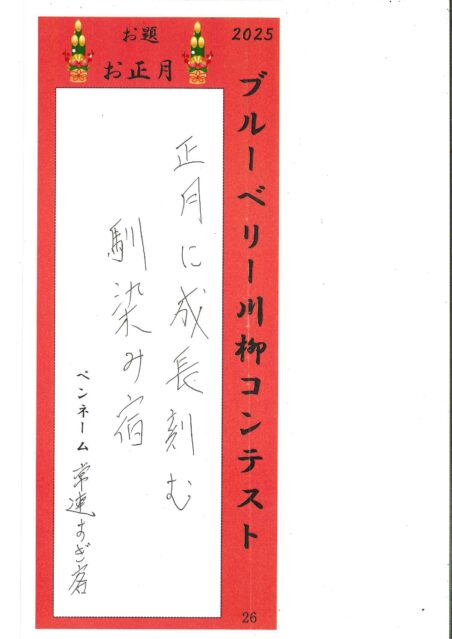 2025
ブルーベリー川柳コンテスト
お題
お正月
正月に成長刻む
馴染み宿
ペンネーム 常連まご宿
26